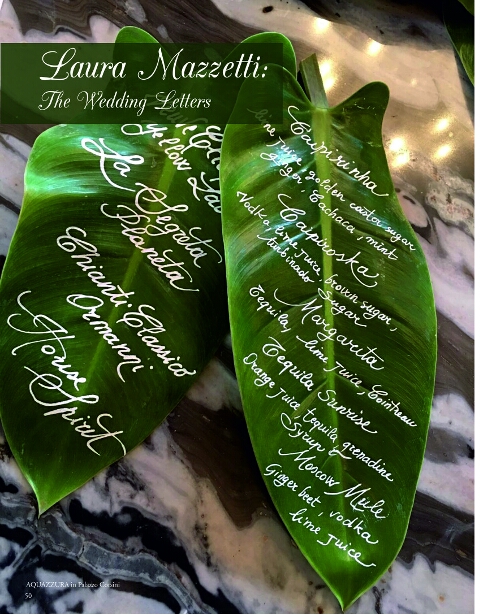 Laura Mazzetti:
The Wedding Letters
Yellow
La Segreta
Planeta
Chianti Classico
Ormanni
House Spirit
Caipirinha
lime juice golden castor sugar
ginger, Cachaca, mint
Caipiroska
Vodka, lime juice, brown sugar,
Sugar
Margarita
Tequila, lime juice, Cointreau
Tequila Sunrise
Orange juice tequila, grenadine
Syrup
Moscow Mule
Ginger beet, vodka
lime juice
AQUAZZURA in Palazzo Corsini
50